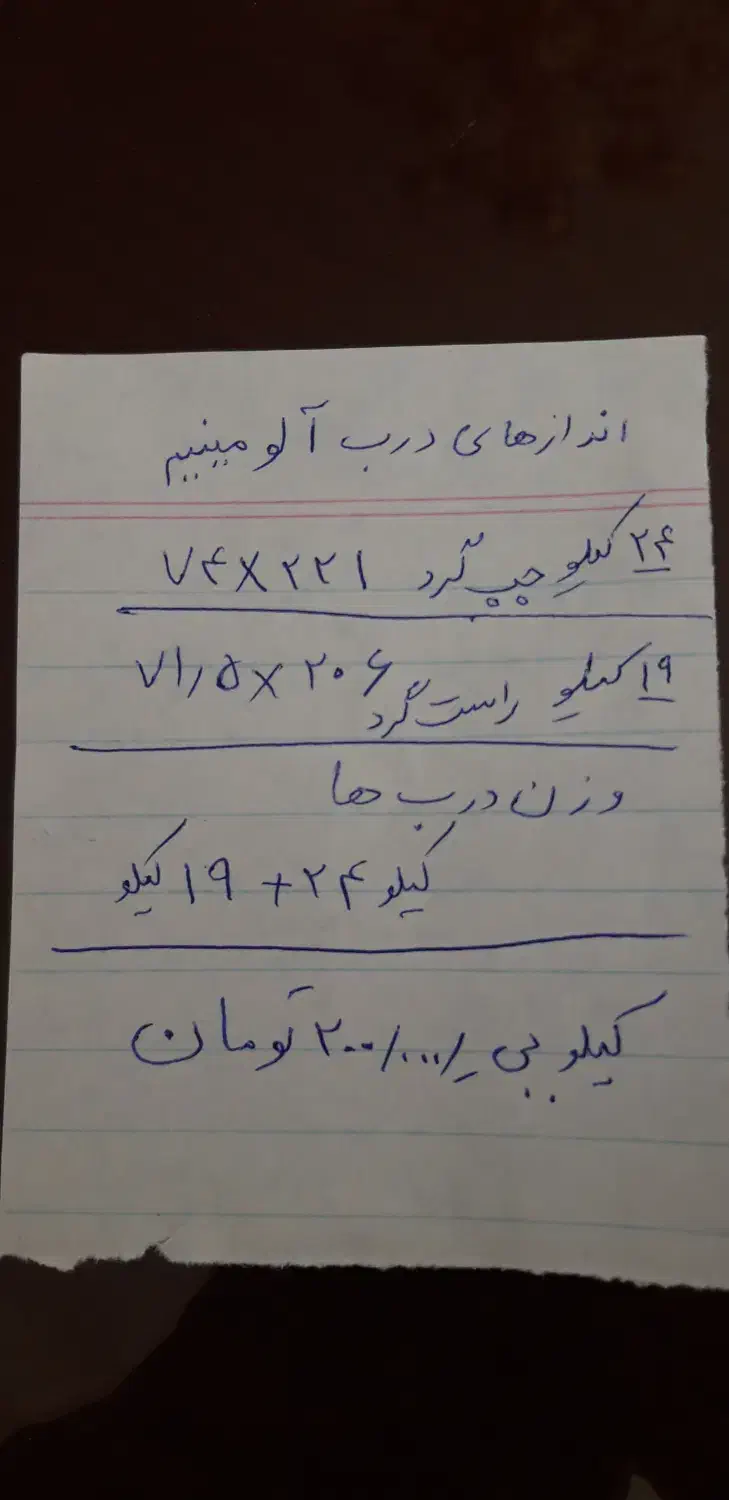 اندازهای درب آلومینیم
۲۴ کیلو چپ گرد ۷۴X۲۲۱
۱۹ کیلو راست گرد ۷۱٫۵X۲۰۶
وزن درب ها
کیلو ۲۴ + ۱۹ کیلو
کیلویی ۲۰۰/۰۰۰/ تومان